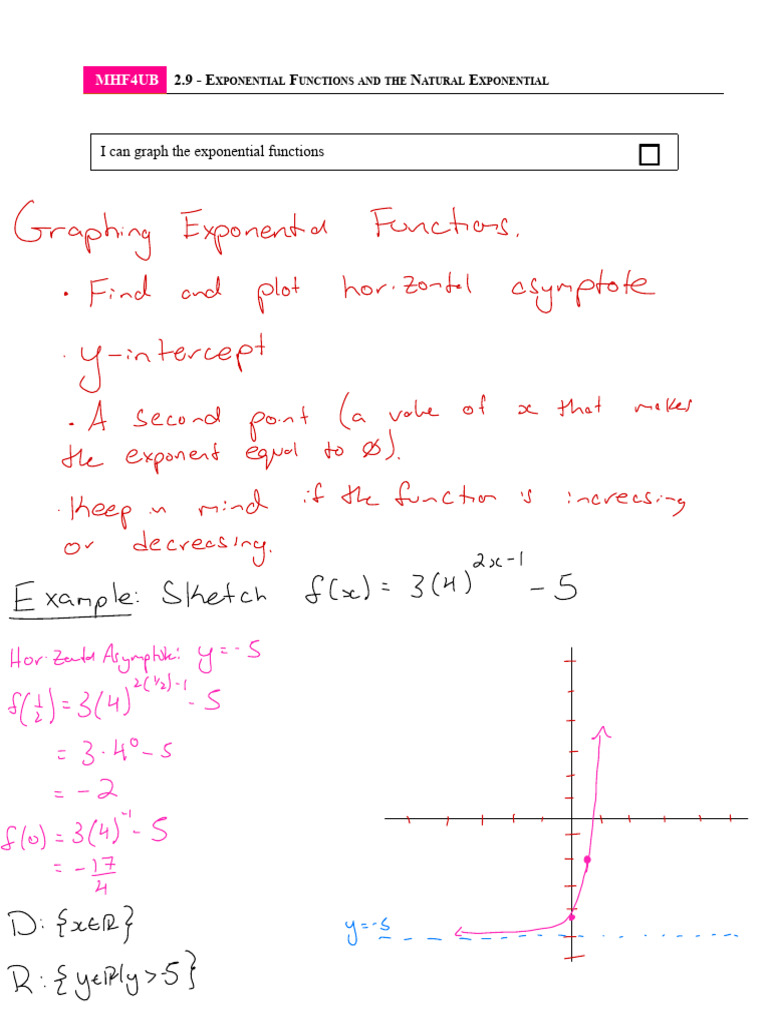 MHF4UB 2.9 - EXPONENTIAL FUNCTIONS AND THE NATURAL EXPONENTIAL
I can graph the exponential functions
Graphing Exponential Functions.
• Find and plot horizontal asymptote
• y-intercept
• A second point (a value of x that makes
the exponent equal to 0).
• Keep in mind if the function is increasing
or decreasing.
Example: Sketch f(x) = 3(4)^{2x-1} - 5
Horizontal Asymptote: y = -5
f(1/2) = 3(4)^{2(1/2)-1} - 5
= 3 · 4^0 - 5
= -2
f(0) = 3(4)^{-1} - 5
= -17/4
D: {x∈ℝ}
R: {y∈ℝ|y > -5}
y = -5